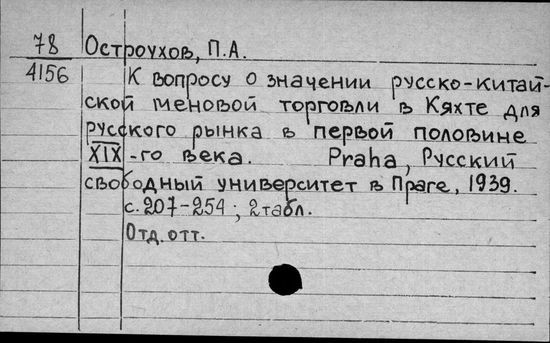 78 Остроухов, П.А.
4156 К вопросу о значении русско-китай-
ской меновой торговли в Кяхте для
русского рынка в первой половине
XIX-го века. Praha, Русский
свободный университет в Праге, 1939.
с.207-254; 2 табл.
Отд. отт.